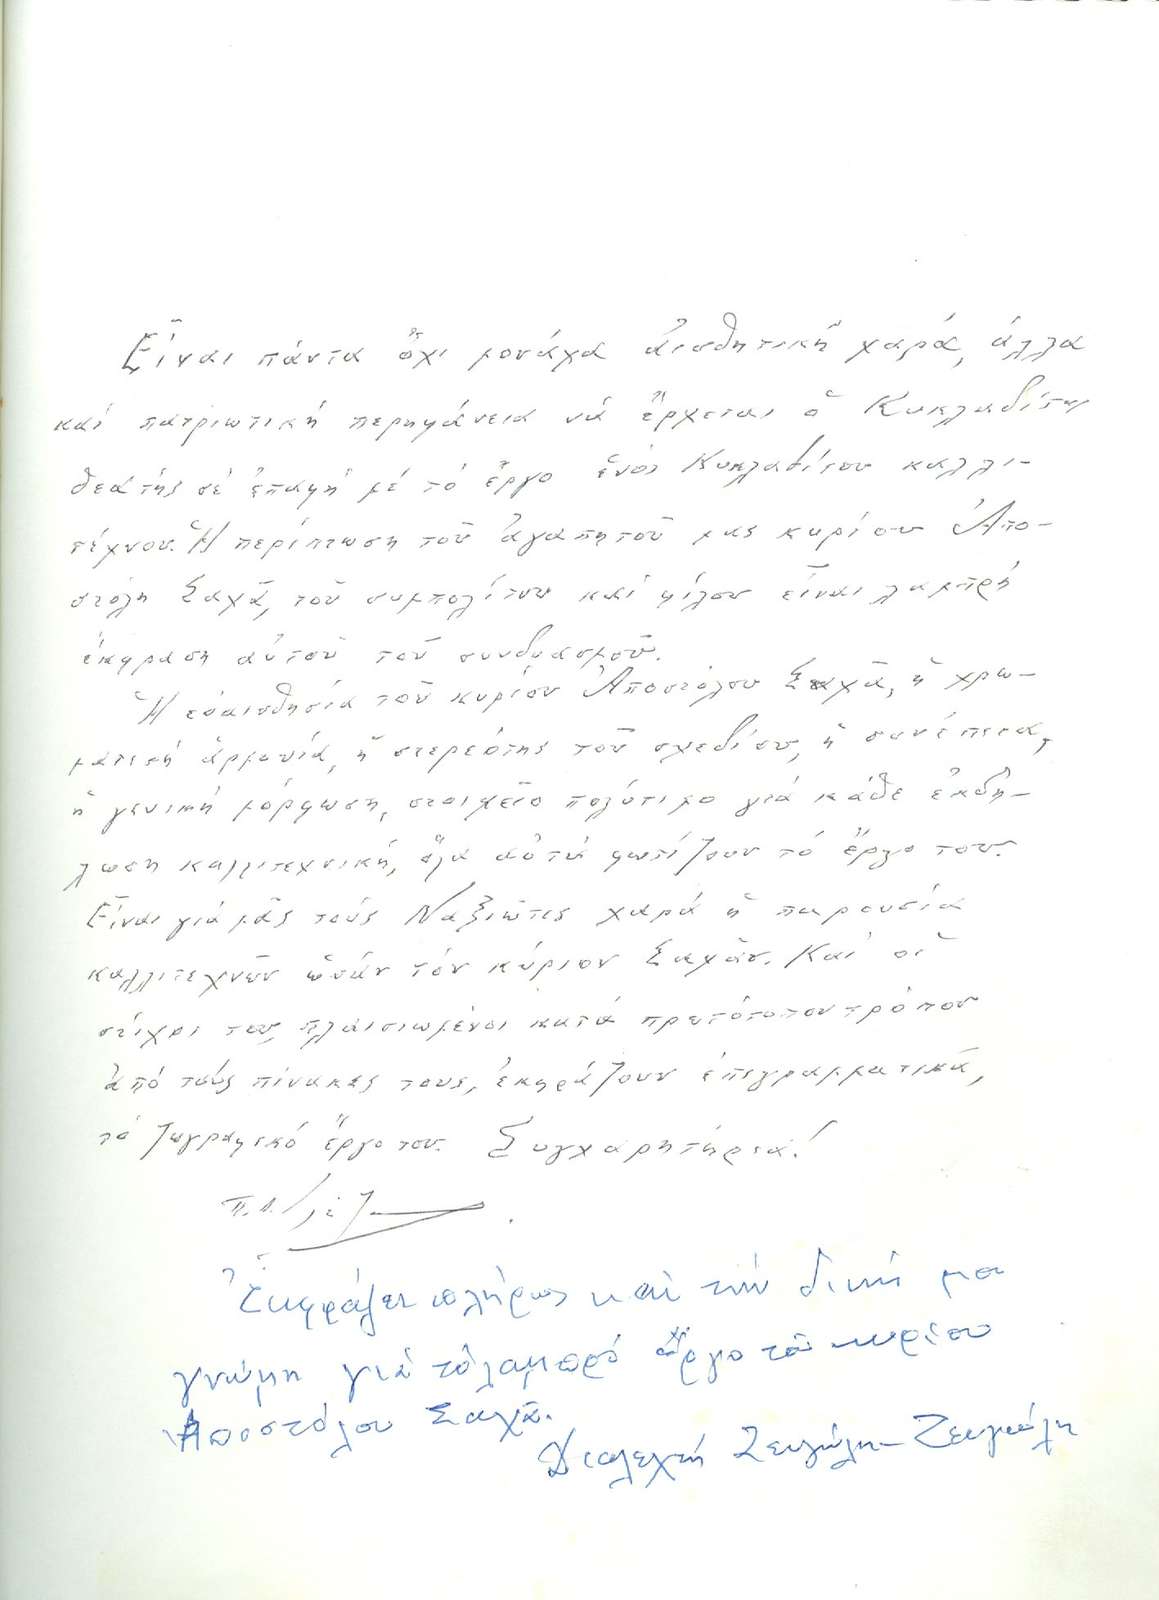 Εἶναι πάντα ὄχι μονάχα αἰσθητική χαρά, ἀλλά
καί πατριωτική περηφάνεια νά ἔρχεται ὁ Κυκλαδίτης
θεατής σέ ἐπαφή μέ τό ἔργο ἑνός Κυκλαδίτου καλλι-
τέχνου. Ἡ περίπτωση τοῦ ἀγαπητοῦ μας κυρίου Ἀπο-
στόλη Σαχᾶ, τοῦ συμπολίτου καί φίλου εἶναι λαμπρή
ἐκφραση αὐτοῦ τοῦ συνδυασμοῦ.
Ἡ εὐαισθησία τοῦ κυρίου Ἀποστόλου Σαχᾶ, ἡ χρω-
ματική ἁρμονία, ἡ στερεότης τοῦ σχεδίου, ἡ συνέπεια,
ἡ γενική μόρφωση, στοιχεῖο πολύτιμο γιά κάθε ἐκδή-
λωση καλλιτεχνική, ὅλα αὐτά φωτίζουν τό ἔργο του.
Εἶναι γιά μᾶς τούς Ναξιῶτες χαρά ἡ παρουσία
καλλιτεχνῶν ὡσάν τόν κύριον Σαχᾶν. Καί οἱ
στίχοι του, πλαισιωμένοι κατά πρωτότυπον τρόπον
ἀπό τούς πίνακες τους, ἐκφράζουν ἐπιγραμματικά,
τό ζωγραφικό ἔργο του. Συγχαρητήρια!
Ἐκφράζει πλήρως καί τήν δική μου
γνώμη γιά τό λαμπρό ἔργο τοῦ κυρίου
Ἀποστόλου Σαχᾶ.
Διαλεχτή Ζευγώλη-